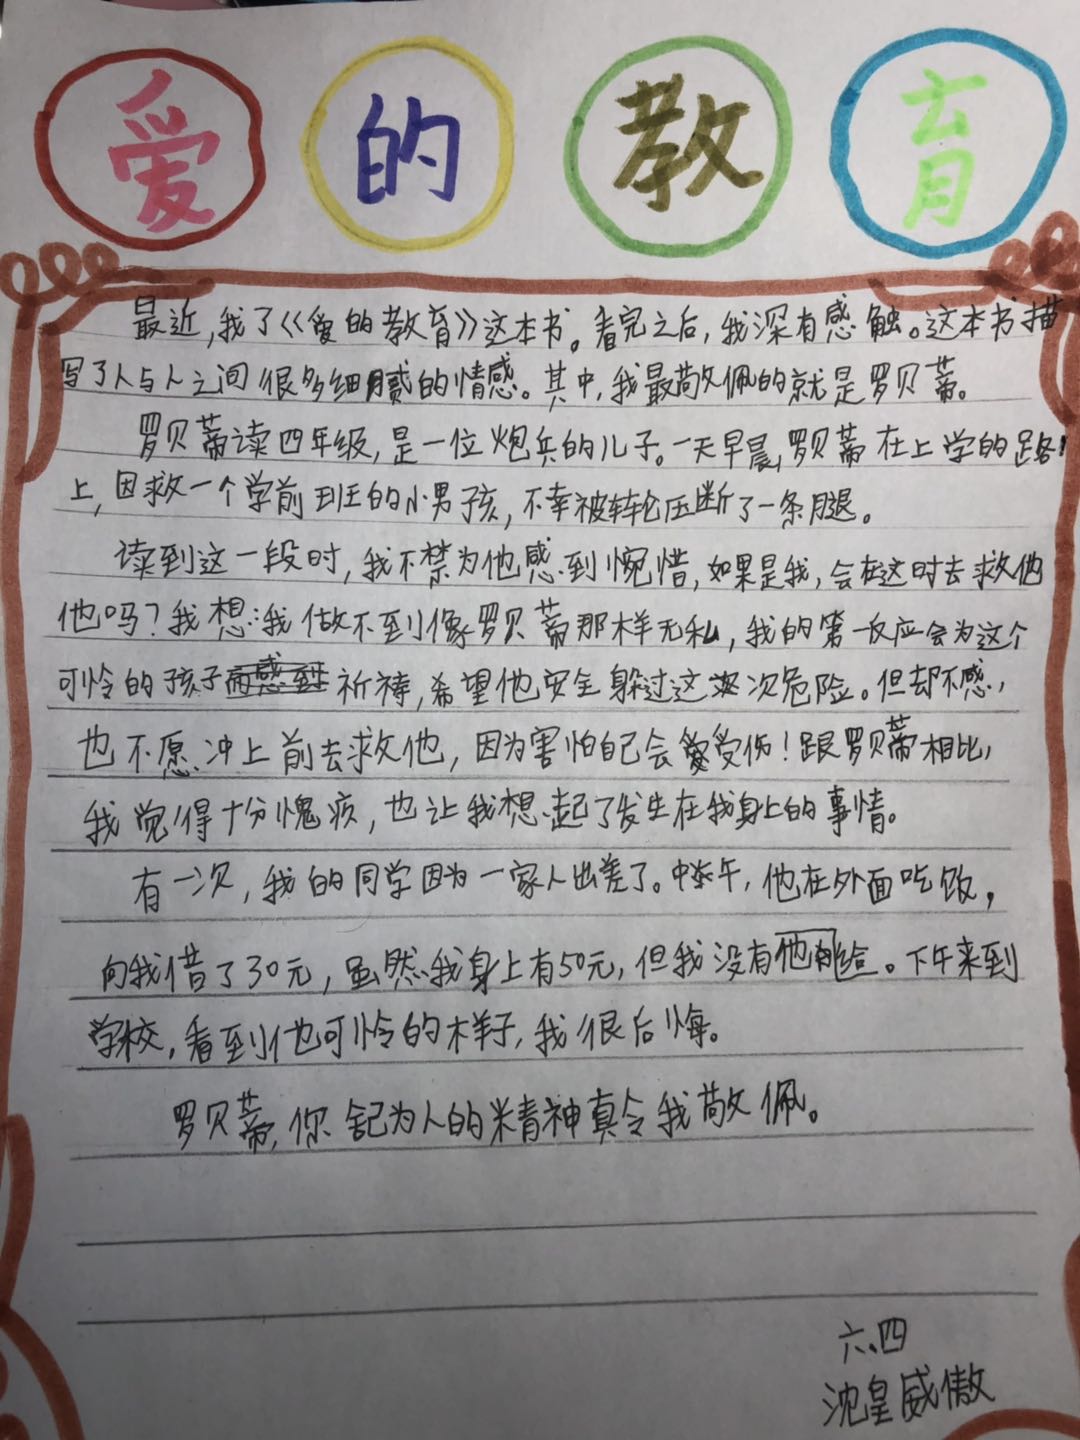 爱的教育
最近,我了《爱的教育》这本书。看完之后,我深有感触。这本书描
写了人与人之间很多细腻的情感。其中,我最敬佩的就是罗贝蒂。
罗贝蒂读四年级,是一位炮兵的儿子。一天早晨,罗贝蒂在上学的路
上,因救一个学前班的小男孩,不幸被车轮压断了一条腿。
读到这一段时,我不禁为他感到惋惜,如果是我,会在这时去救他
他吗?我想:我做不到像罗贝蒂那样无私,我的第一反应会为这个
可怜的孩子祈祷,希望他安全躲过这次危险。但却不感,
也不愿冲上前去救他,因为害怕自己会受伤!跟罗贝蒂相比,
我觉得十分愧疚,也让我想起了发生在我身上的事情。
有一次,我的同学因为一家人出差了。中午,他在外面吃饭,
向我借了30元,虽然我身上有50元,但我没有他给。下午来到
学校,看到他可怜的样子,我很后悔。
罗贝蒂,你舍己为人的精神真令我敬佩。
六.四
沈皇威傲